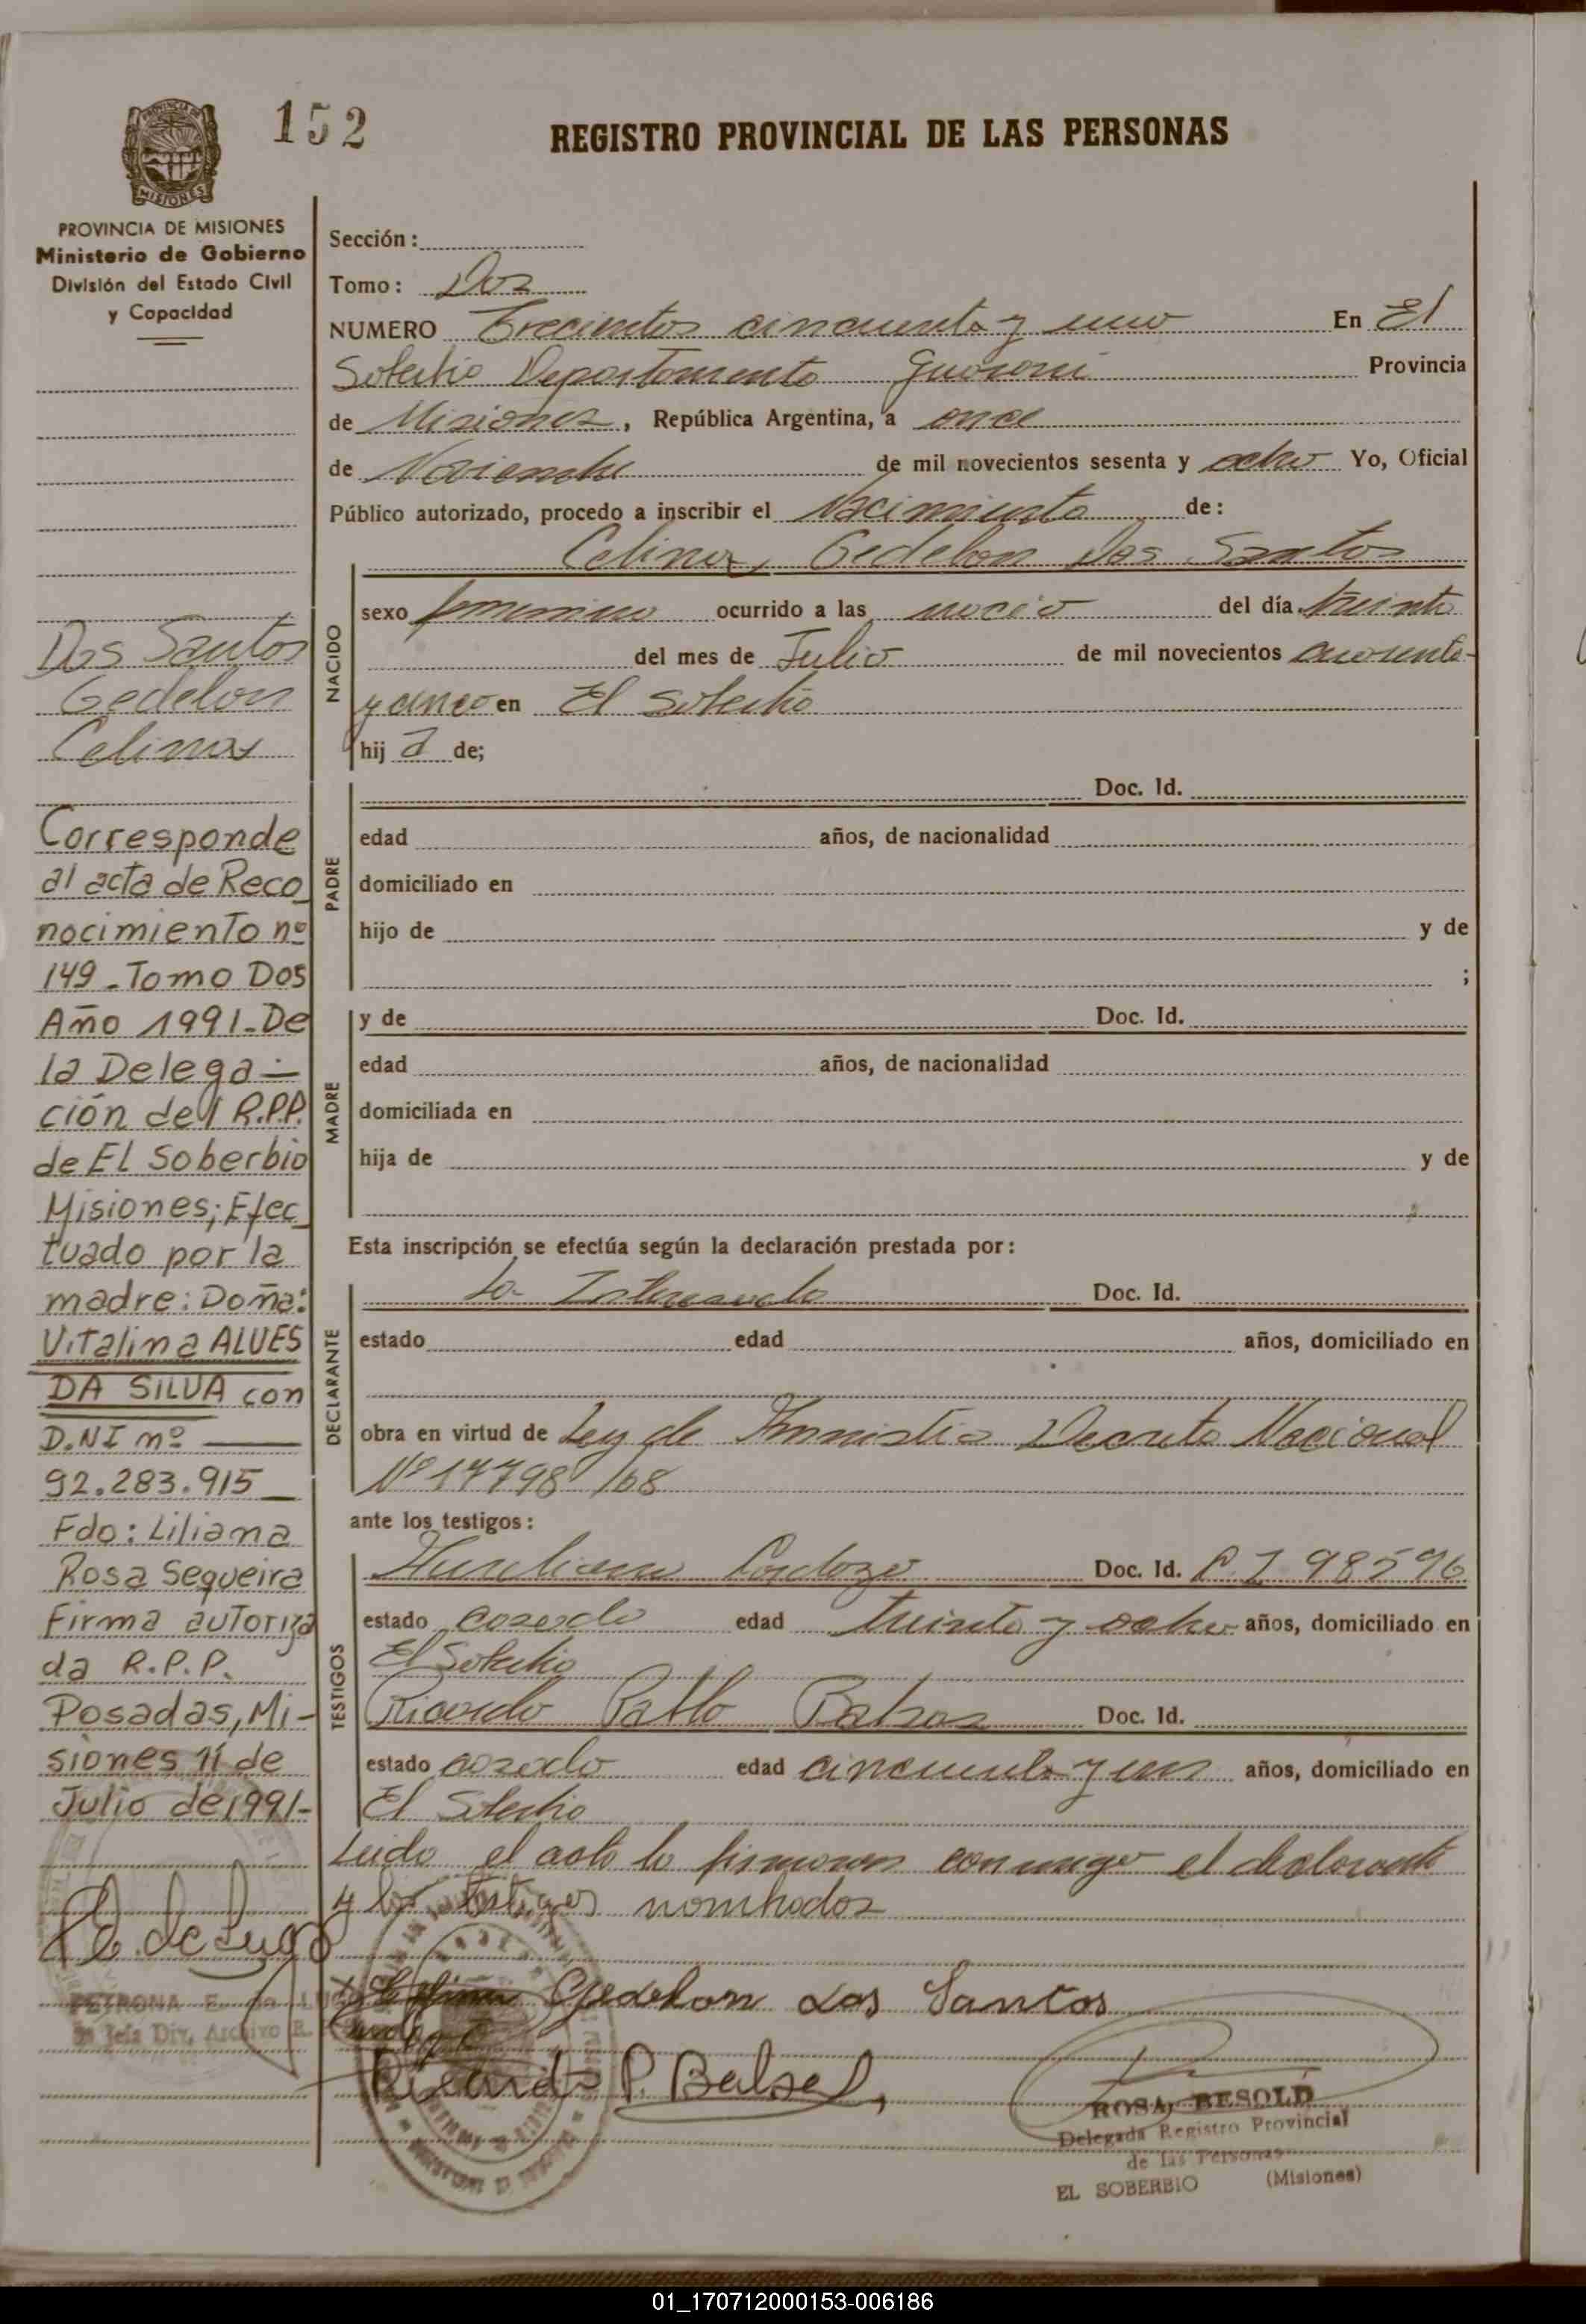 152
REGISTRO PROVINCIAL DE LAS PERSONAS
PROVINCIA DE MISIONES
Ministerio de Gobierno
División del Estado Civil
y Capacidad
Dos Santos
Gedelon
Celina
Corresponde
al acta de Reco
nocimiento nº
149 - Tomo Dos
Año 1991 - De
la Delega-
ción del R.P.P.
de El Soberbio
Misiones; Efec
tuado por la
madre: Doña:
Vitalina ALVES
DA SILVA con
D.NI nº
92.283.915
Fdo: Liliana
Rosa Sequeira
Firma autoriza
da R.P.P.
Posadas, Mi-
siones 11 de
Julio de 1991-
Sección:
Tomo: Dos
NUMERO Trecientos cincuenta y uno En El
Soberbio Departamento Guarani Provincia
de Misiones, República Argentina, a once
de Noviembre de mil novecientos sesenta y ocho Yo, Oficial
Público autorizado, procedo a inscribir el Nacimiento de:
Celina, Gedelon Dos Santos
NACIDO
sexo femenino ocurrido a las del día treinta
del mes de Julio de mil novecientos cuarenta
y cinco en El Soberbio
hij a de;
PADRE
Doc. Id.
edad años, de nacionalidad
domiciliado en
hijo de y de
;
MADRE
y de Doc. Id.
edad años, de nacionalidad
domiciliada en
hija de y de
Esta inscripción se efectúa según la declaración prestada por:
DECLARANTE
La Interesada Doc. Id.
estado edad años, domiciliado en
obra en virtud de Ley de Amnistia Decreto Nacional
Nº 17798/68
ante los testigos:
TESTIGOS
Cardozo Doc. Id. C.I 98596
estado casado edad treinta y ocho años, domiciliado en
El Soberbio
Ricardo Pablo Doc. Id.
estado casado edad cincuenta y un años, domiciliado en
El Soberbio
Leido el acta la firmaron conmigo el declarante
y los testigos nombrados
Gedelon dos Santos
Ricardo P.
PETRONA E. de LUGO
Jefa Div. Archivo R.
ROSA BESOLD
Delegada Registro Provincial
de las Personas
EL SOBERBIO (Misiones)
01_170712000153-006186